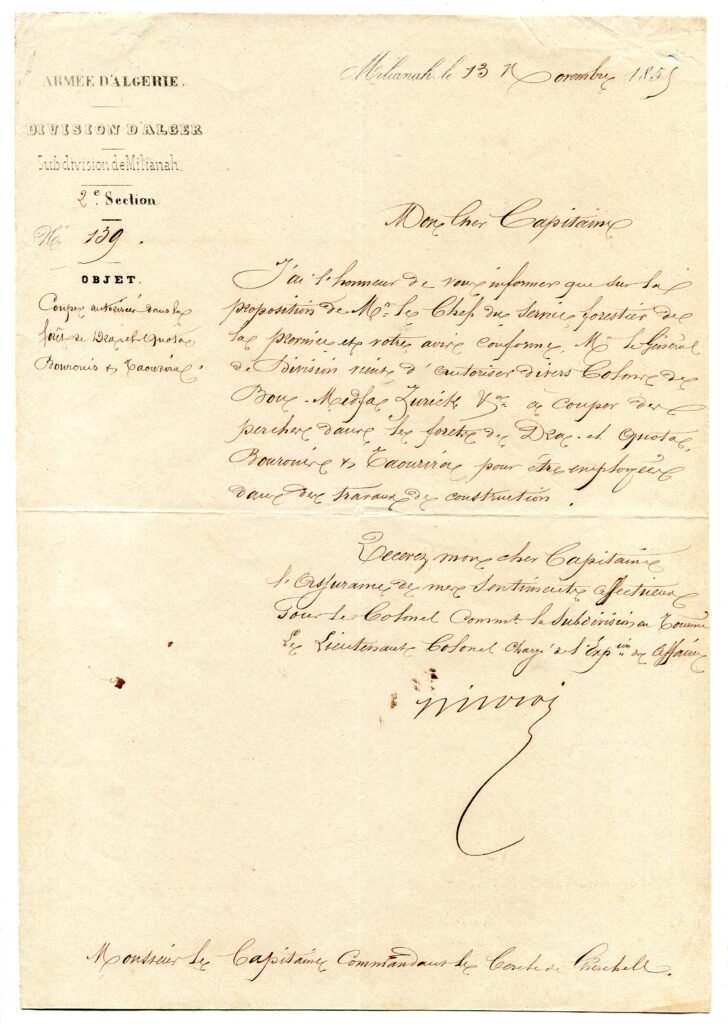 ARMÉE D'ALGÉRIE.
DIVISION D'ALGER
Subdivision de Milianah.
2e. Section
No 139.
OBJET.
Coupes autorisées dans les
forêts de
Bourouis & Taourira
Milianah, le 13 Novembre 1855
Mon cher Capitaine
J'ai l'honneur de vous informer que sur la
proposition de Mr. le Chef du service forestier de
la province et votre avis conforme, Mr. le Général
de Division vient d'autoriser divers Colons de
Bou-Medfa, Zurich, a couper des
perches dans les forêts de
Bourouis & Taourira pour être employées
dans des travaux de construction.
Recevez mon cher Capitaine
l'assurance de mes sentiments affectueux
Pour le Colonel Commt la Subdivision en Tournée
Le Lieutenant Colonel Chargé de l'Expion des Affaires
Monsieur le Capitaine Commandant le Cercle de Cherchell.